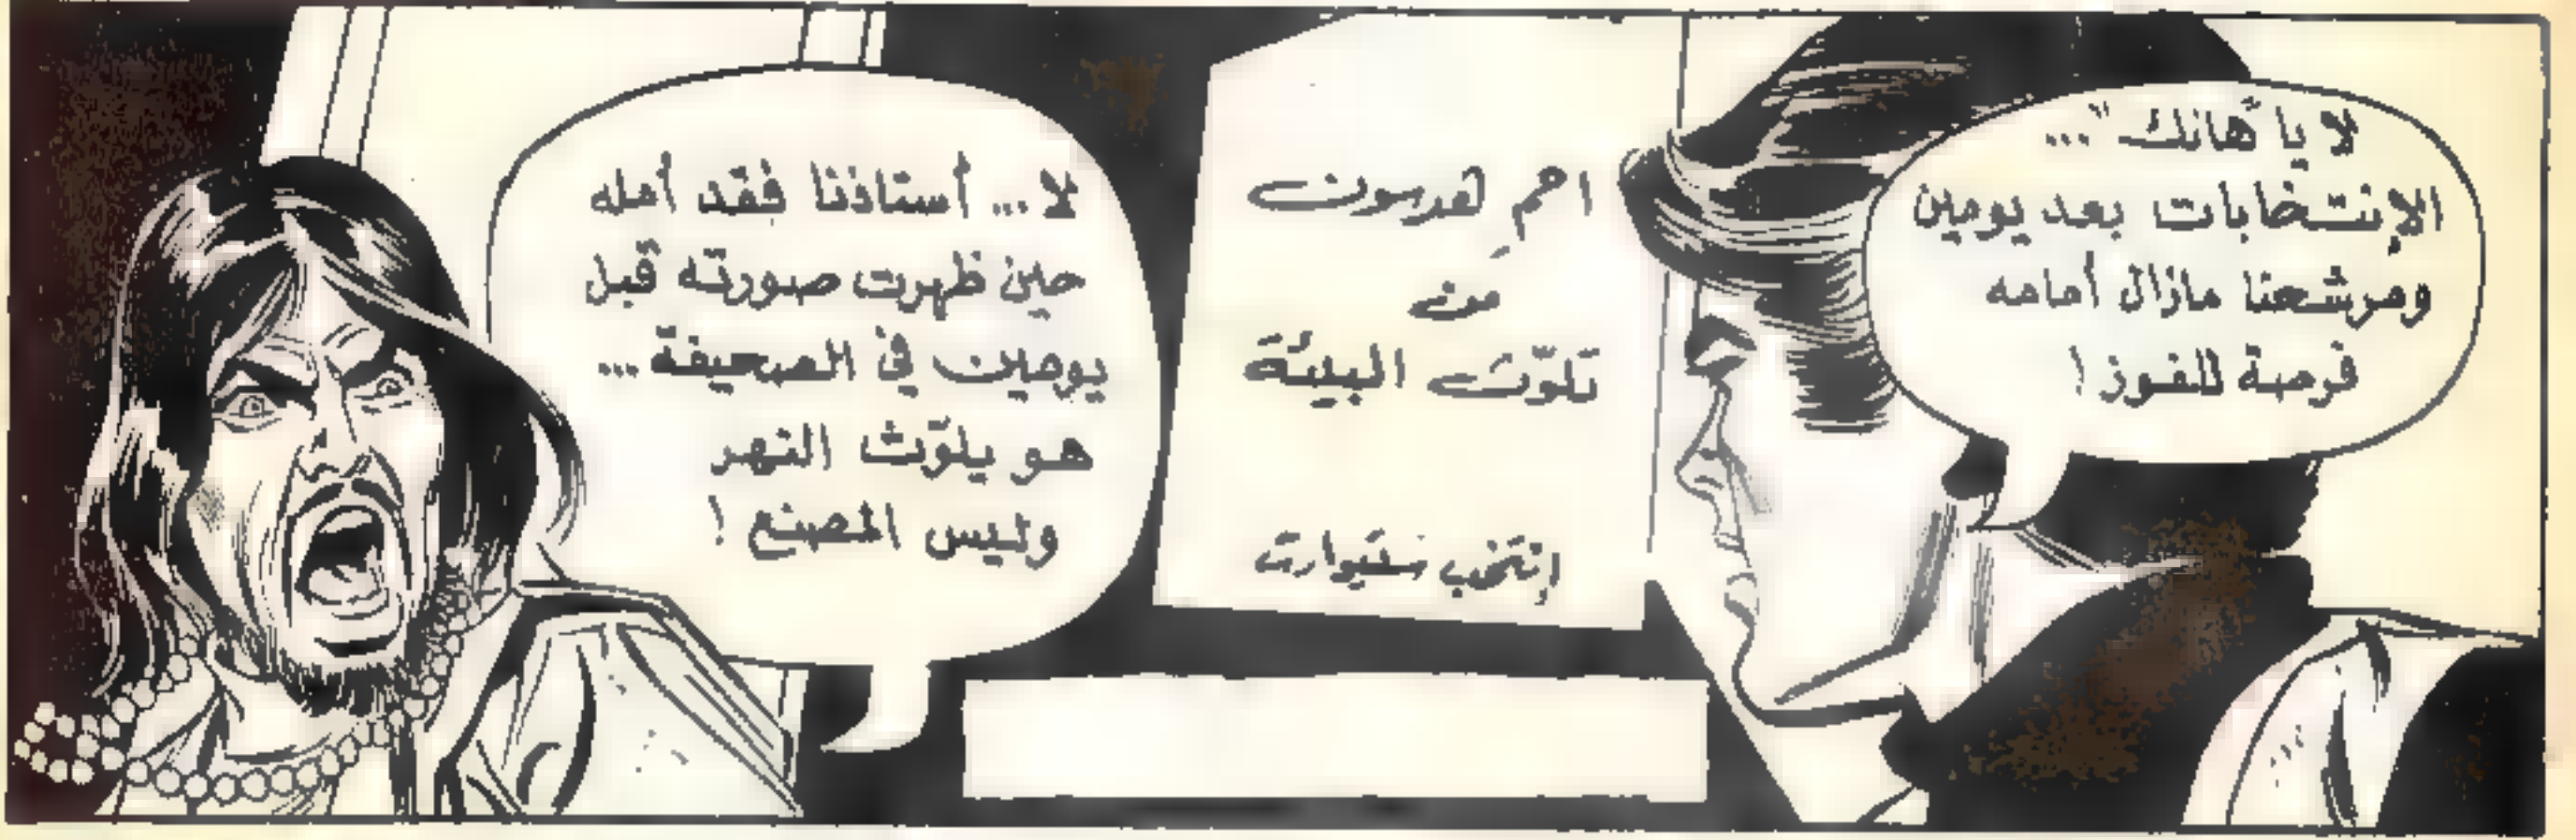 لا يا "هانك"...
الإنتخابات بعد يومين
ومرشحنا مازال أمامه
فرصة للفوز!
احمِ هدسون
من
تلوّث البيئة
إنتخب ستيوارت
لا... أستاذنا فقد أمله
حين ظهرت صورته قبل
يومين في الصحيفة...
هو يلوّث النهر
وليس المصنع!